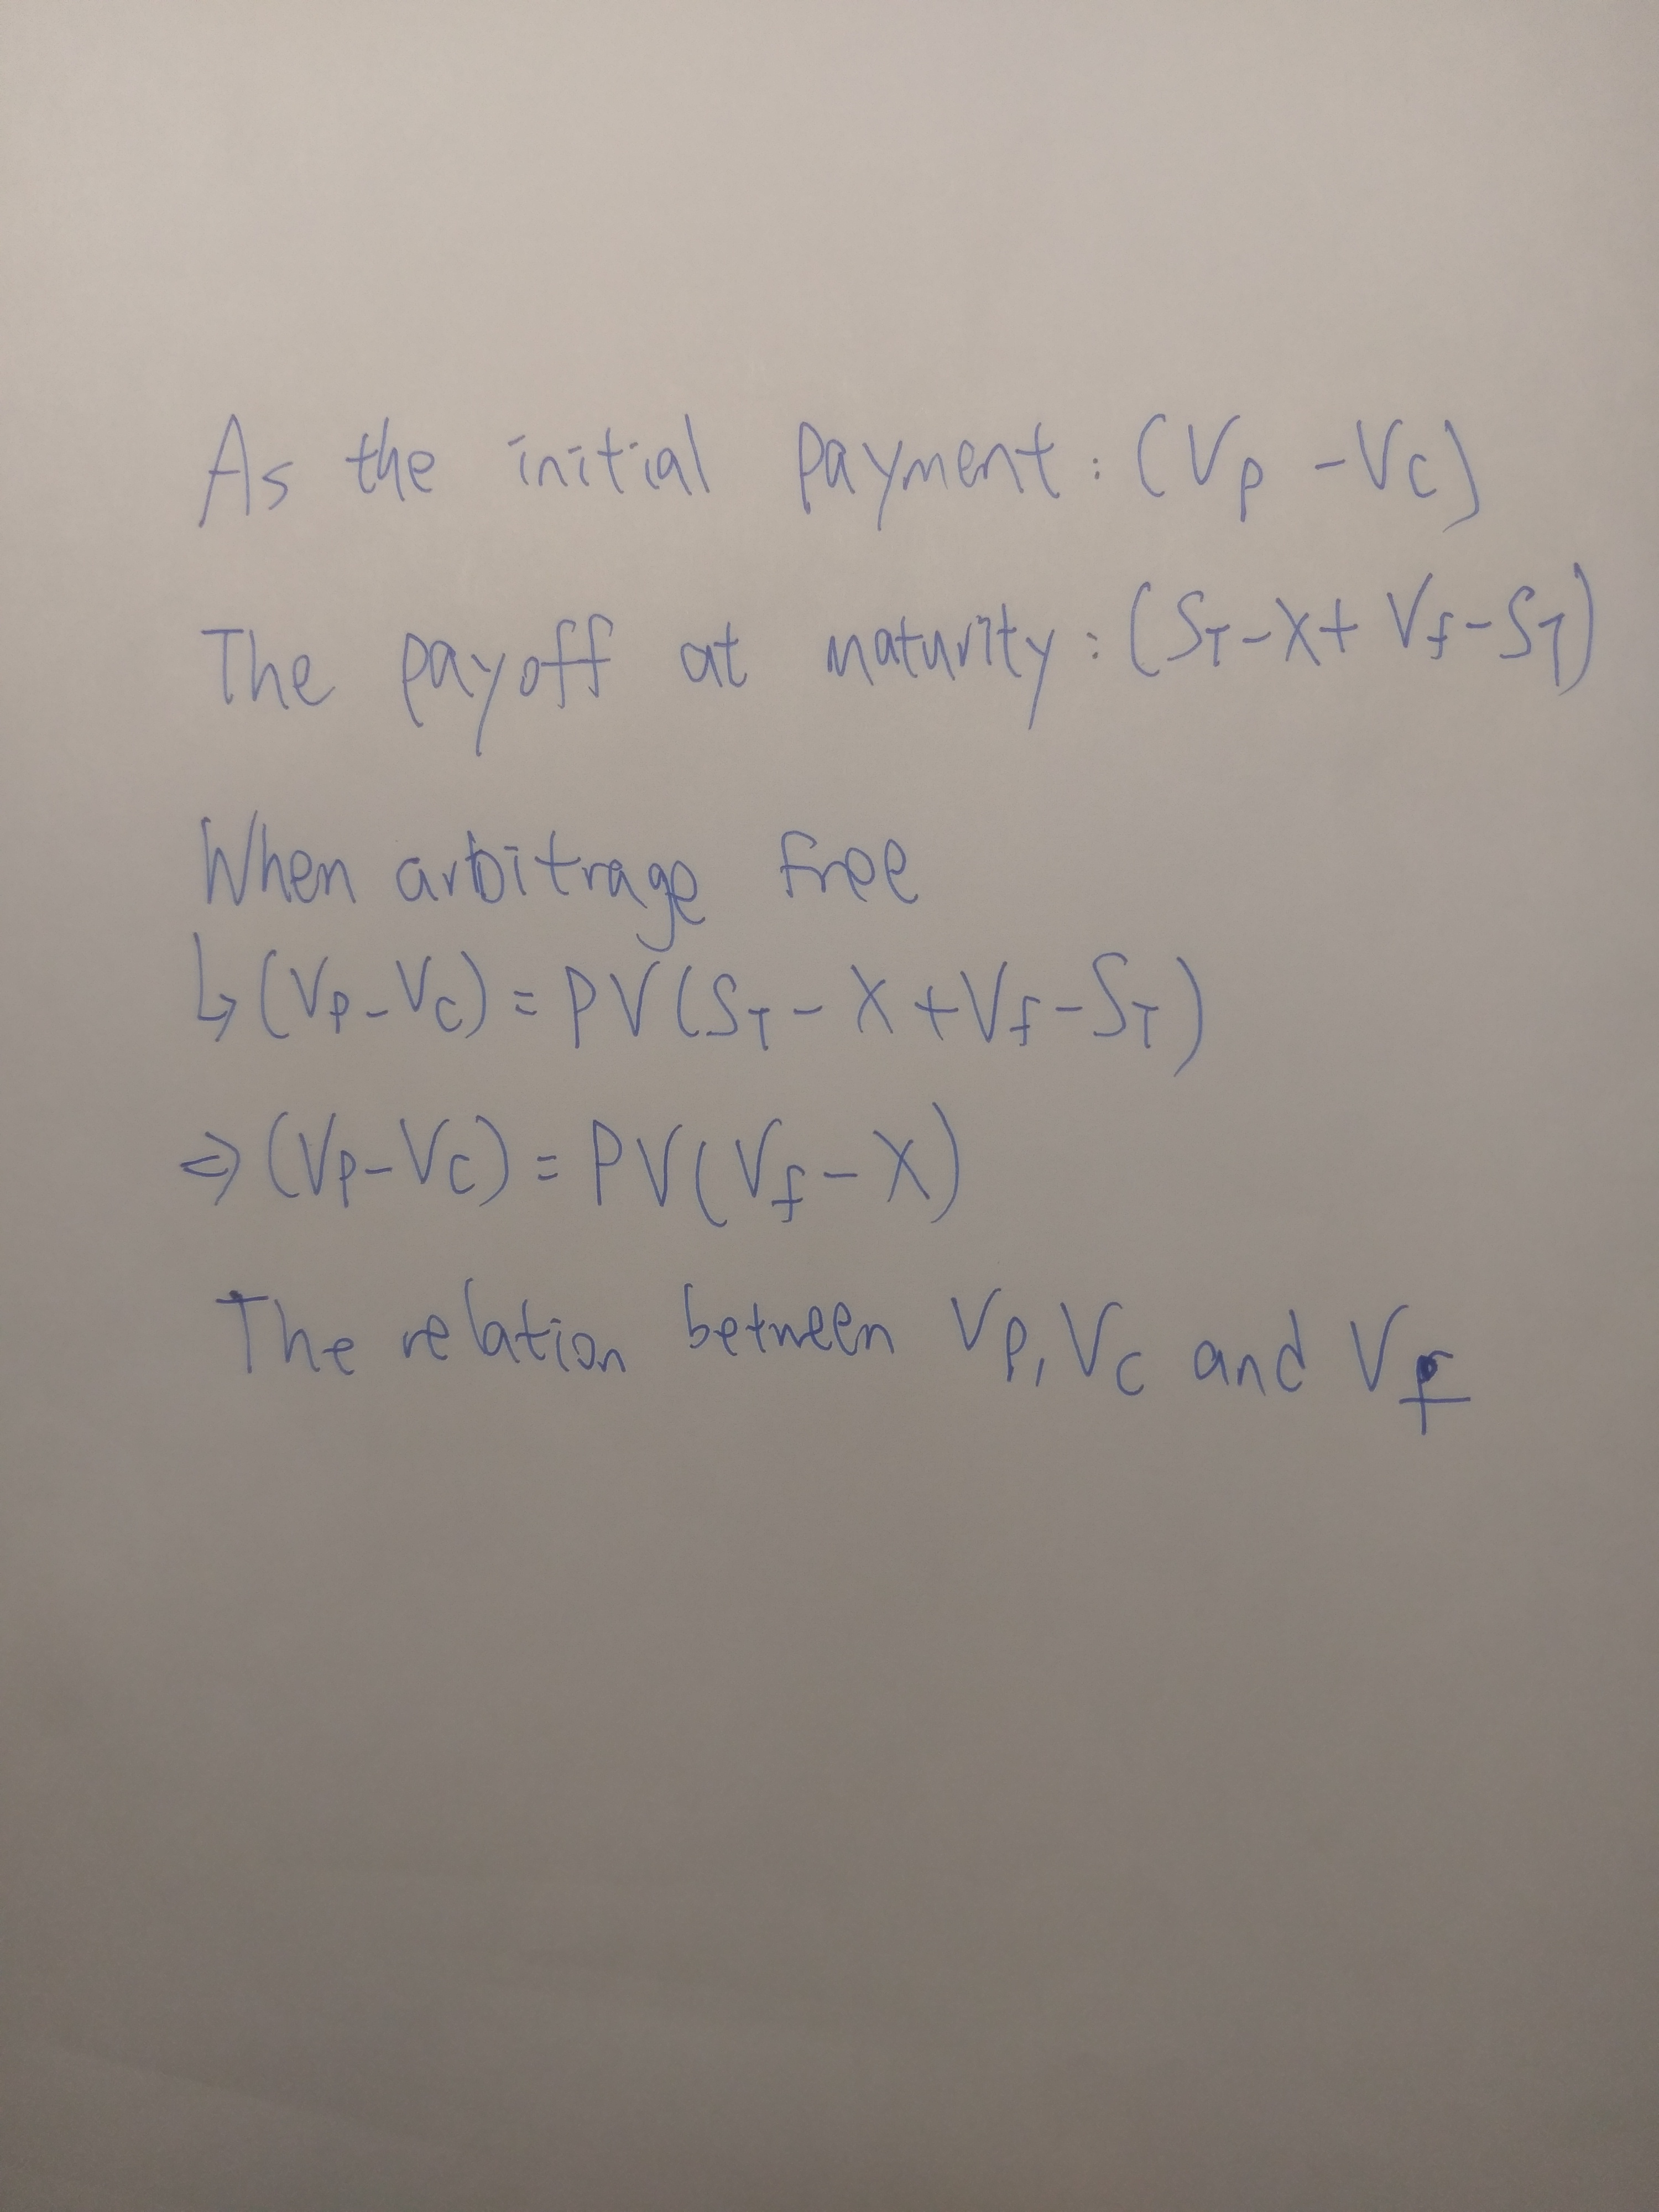 As the initial payment: (Vp - Vc)
The payoff at maturity: (ST - X + Vf - ST)
When arbitrage free
↳ (Vp - Vc) = PV(ST - X + Vf - ST)
⇒ (Vp - Vc) = PV(Vf - X)
The relation between Vp, Vc and Vf